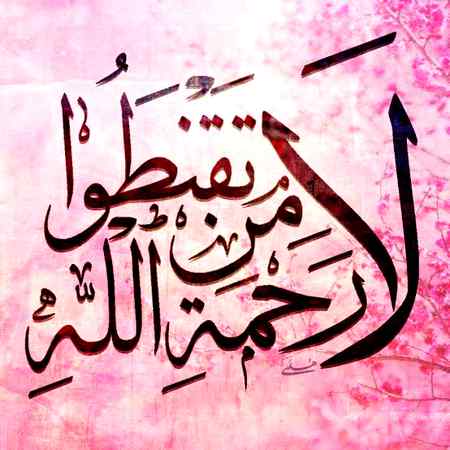 لَا تَقْنَطُوا
مِن
رَحْمَةِ اللَّهِ